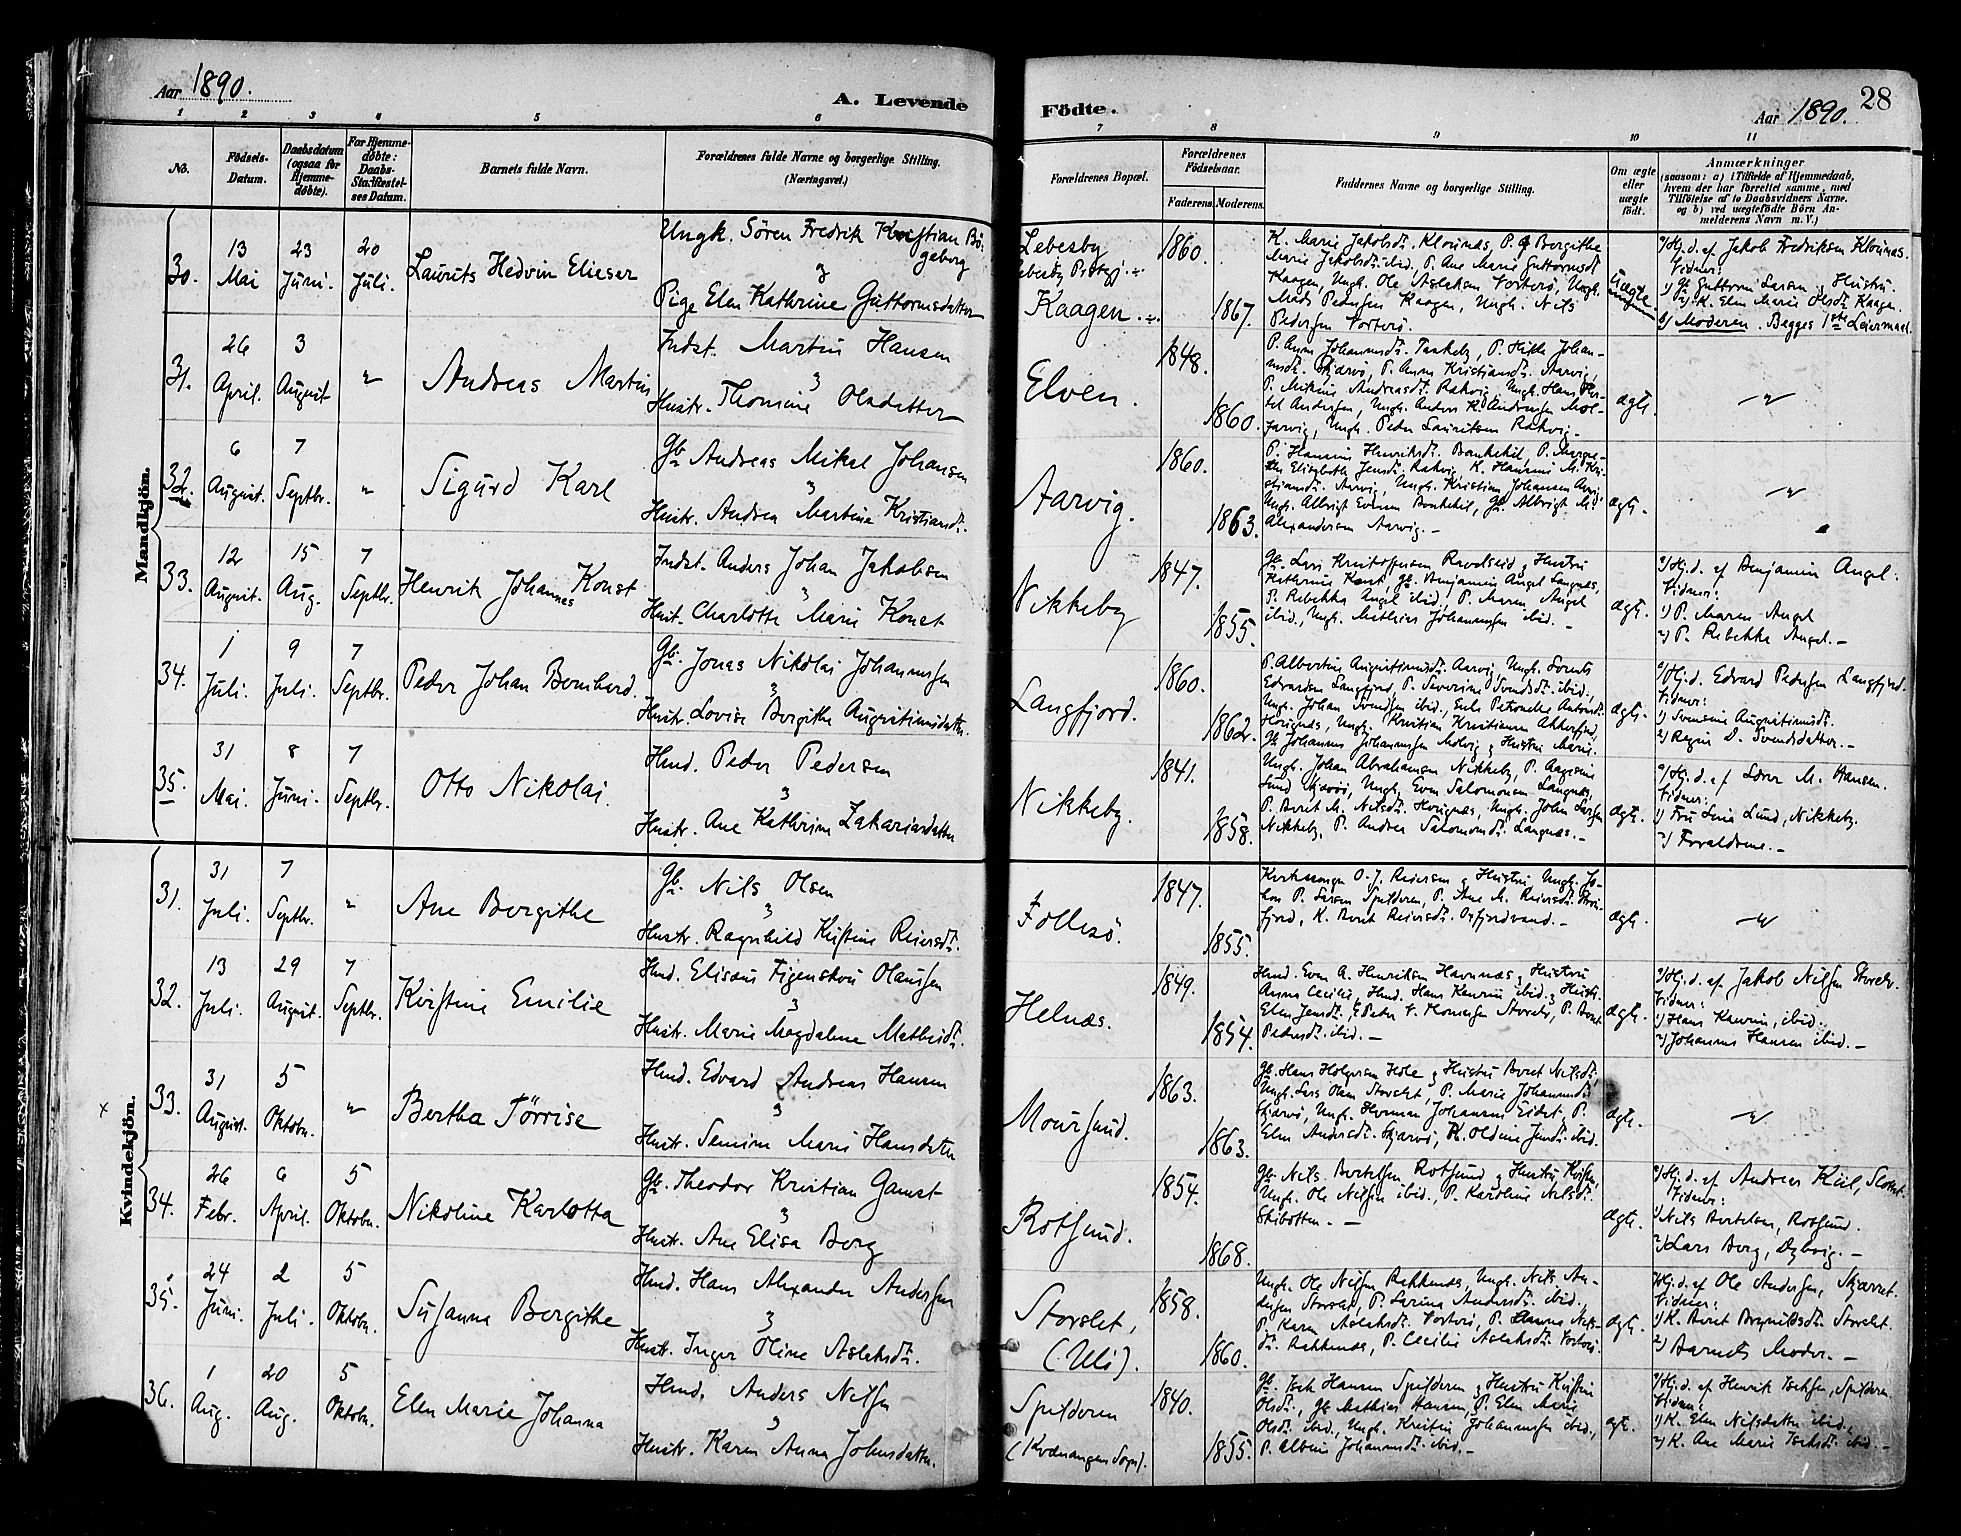 Aar 1890.
A. Levende
Födte.
Aar 1890.
28
1 2 3 4 5 6 7 8 9 10 11
No.
Födsels-Datum.
Daabsdatum (ogsaa for Hjemme-döbte).
For Hjemme-döbte: Daabs-Stadfæstel-ses Datum.
Barnets fulde Navn.
Forældrenes fulde Navne og borgerlige Stilling.
(Næringsvei.)
Forældrenes Bopæl.
Forældrenes Födselsaar.
Faderens. Moderens.
Faddernes Navne og borgerlige Stilling.
Om ægte eller uægte født.
Anmærkninger
(saasom: a) i Tilfælde af Hjemmedaab,
hvem der har forrettet samme, med
Tilföielse af to Daabsvidners Navne.
og b) ved uægtefödte Börn An-
melderens Navn m. V.)
Mandkjön.
30.
13 Mai
23 Juni.
20 Juli.
Laurits Hedvin Elieser
Ungk. Sören Fredrik Kristian Bö-
geberg
Pige Elen Kathrine Guttormsdatter
Lebesby
Kaagen.
1860.
1867.
K. Marie Jakobsdt. Klounæs, P. Bergithe
Marie Jakobsdt. ibid. P. Ane Marie Guttormsdt
Kaagen, Ungk. Ole Aslaksen Vorterö, Ungk.
Mads Pedersen Kaagen, Ungk. Nils
Pedersen Vorterö.
Uægte
a) Hj. d. af Jakob Fredriksen Klounæs.
Vidner:
1) Gb. Guttorm Larsen, Hustru
2) K. Elen Marie Olsdt. Kaagen.
b) Moderen. Begges 1ste Leiermaal.
31.
26 April.
3 August
"
Andreas Martin
Indst. Martin Hansen
Hustr. Thomine Olsdatter
Elven.
1848.
1860.
P. Anna Johannesdt. Taskeby, P. Hilda Johan-
nesdt. Skjærvö, P. Anna Kristiansdt. Aarvig,
P. Mikine Andreasdt. Rakvig, Ungk. Hans Per-
tel Andersen, Ungk. Anders K. Andersen Mol-
farvig, Ungk. Peder Lauritsen Rakvig.
ægte.
"
32.
6 August.
7 Septbr.
"
Sigurd Karl
Gb. Andreas Mikal Johansen
Hustr. Andrea Martine Kristiansdt.
Aarvig.
1860.
1863.
ægte.
Ungk. Kristian Johansen
Alexandersen Aarvig.
"
33.
12 August.
15 Aug.
7 Septbr.
Henrik Johannes Konst
Indst. Anders Johan Jakobsen
Hust. Charlotte Marie Konst
Nikkeby
1847.
1855.
Kathrine Konst, Gb. Benjamin Angel Langnæs,
P. Rebekka Angel ibid., P. Maren Angel
ibid., Ungk. Mathias Johannesen ibid.
ægte.
a) Hj. d. af Benjamin Angel.
Vidner:
1) P. Maren Angel
2) P. Rebekka Angel.
34.
1 Juli.
9 Juli.
7 Septbr.
Peder Johan Bernhard.
Gb. Jonas Nikolai Johannesen
Hustr. Lovise Bergithe Augustinusdatter.
Langfjord.
1860.
1862.
P. Albertine Augustinusdt. Aarvig, Ungk. Lorents
Edvardsen Langfjord, P. Severine Svendsdt. ibid.,
Ungk. Johan Svendsen ibid., Enke Petronelle Antonsdt.
Ungk. Kristian Kristiansen Akkarfjord,
ægte.
a) Hj. d. Edvard Pedersen Langfjord.
Vidner:
1) Svensine Augustinusdt.
2) Regine D. Svendsdatter.
35.
31 Mai.
8 Juni.
7 Septbr.
Otto Nikolai.
Hmd. Peder Pedersen
Hustr. Ane Kathrine Zakariasdatter
Nikkeby.
1841.
1858.
Gb. Johannes Johannesen Molvig, Hustru Marie.
Ungk. Johan Abrahamsen Nikkeby, P. Aagesine
Lund Skjærvö, Ungk. Even Salomonsen Langnæs,
P. Berit M. Nilsdt. Ungk. John Larsen
Nikkeby, P. Andrea Salomonsdt. Langnæs.
ægte.
a) Hj. d. af Lærer M. Hansen.
Vidner:
1) Fru Lina Lund, Nikkeby.
2) Forældrene.
Kvindekjön.
31.
31 Juli.
7 Septbr.
"
Ane Bergithe
Gb. Nils Olsen
Hustr. Ragnhild Kristine Reiersdt.
Follesö.
1847.
1855.
Kirkesanger O. J. Pedersen, Hustru, Ungk. Jo-
han P. Larsen Spilderen, P. Ane M. Reiersdt.
fjord, K. Berit Reiersdt. Oxfjordvand.
ægte.
"
32.
13 Juli.
29 August.
7 Septbr.
Kristine Emilie
Hmd. Elisæus Figenskou Olaussen
Hustr. Marie Magdalene Mathisdt.
Helnæs.
1849.
1854.
Hmd. Even A. Henriksen Havnnæs, Hustru
Anna Cecilie, Hmd. Hans ibid., Hustr.
Elen Jensdt., Peter V. Storslet, P. Berit
Pedersdt. ibid.
ægte.
a) Hj. d. af Jakob Nilsen Storslet.
Vidner:
1) Hans ibid.
2) Johannes Hansen ibid.
x
33.
31 August.
5 Oktobr.
"
Bertha Törrise
Hmd. Edvard Andreas Hansen
Hustr. Semine Marie Hansdatter
Moursund.
1863.
1863.
Gb. Hans Holgersen Hole, Hustru Berit Nilsdt.,
Ungk. Lars Olsen Storslet, P. Marie Johannesdt.
Skjærvö, Ungk. Herman Johansen Eidet, P.
Elen Andersdt. Skjærvö, K. Oldine Jensdt. ibid.
ægte.
"
34.
26 Febr.
6 April.
5 Oktobr.
Nikoline Karlotta
Gb. Theodor Kristian Gamst
Hustr. Ane Elisa Berg
Rotsund.
1854.
1868.
Gb. Nils Bertelsen Rotsund, Hustru Kirsten,
Ungk. Ole Nilsen ibid., P. Karoline Nilsdt.
Skibotten.
ægte.
a) Hj. d. af Andreas Keil,
Vidner:
1) Nils Bertelsen, Rotsund.
2) Lars Berg, Dybvig.
35.
24 Juni.
2 Juli.
5 Oktobr.
Susanna Bergithe
Hmd. Hans Alexander Andersen
Hustr. Inger Oline Aslaksdt.
Storslet,
(Uli).
1858.
1860.
Ungk. Ole Nilsen Bakkenæs, Ungk. Nils An-
dersen Storslet, P. Larina Andersdt. ibid.,
P. Karen Aslaksdt. Vorterö, P. Anna Nils-
dt. Bakkenæs, P. Cecilie Aslaksdt. Vorterö.
ægte.
a) Hj. d. af Ole Andersen,
Vidner:
1) K. Berit Storslet.
2) Barnets Moder.
36.
1 Aug.
20 Aug.
5 Oktobr.
Elen Marie Johanna
Hmd. Anders Nilsen
Hustr. Karen Anna Johnsdatter.
Spilderen
(Kvænangen Sogn).
1840.
1855.
Gb. Isak Hansen Spilderen, Hustru Kirsten
Olsdt., Gb. Mathias Hansen, P. Elen Marie
Olsdt. ibid., Ungk. Kristen Johannesen ibid.,
P. Albine Johannesdt. ibid.
ægte.
a) Hj. d. af Henrik Isaksen, Spilderen.
Vidner:
1) K. Elen Nilsdatter ibid.,
2) K. Ane Marie Isaksdt. ibid.